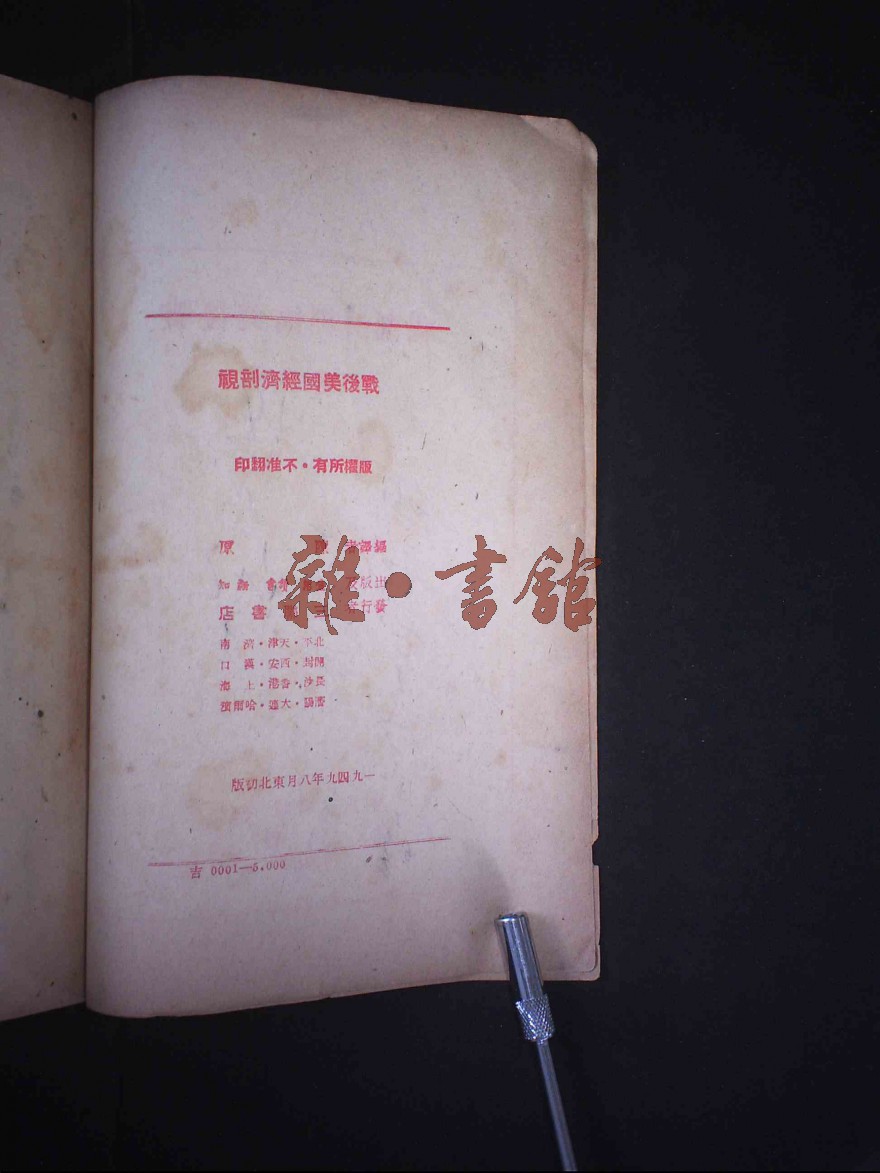 戰後美國經濟剖視
版權所有・不准翻印
編譯者 陳 原
出版 讀書 新知
發行 書店
北平・天津・濟南
開封・西安・漢口
長沙・香港・上海
瀋陽・大連・哈爾濱
一九四九年八月東北初版
吉 0001—5.000
雜・書館